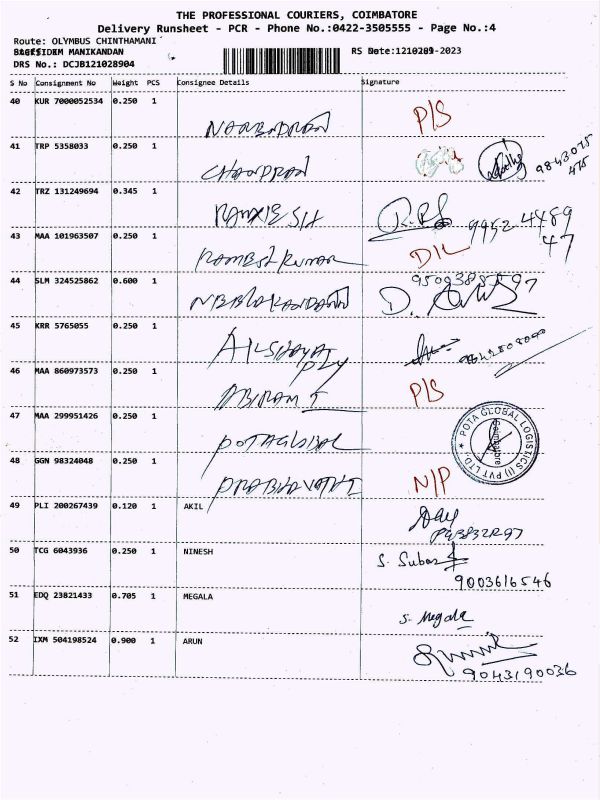 THE PROFESSIONAL COURIERS, COIMBATORE
Delivery Runsheet - PCR - Phone No.:0422-3505555 - Page No.:4
Route: OLYMBUS CHINTHAMANI
MANIKANDAN RS
DRS No.: DCJB121028904
S No Consignment No Weight PCS Consignee Details Signature
40 KUR 7000052534 0.250 1 P/S
41 TRP 5358033 0.250 1 CHANDRAN 9843075
475
42 TRZ 131249694 0.345 1 9952 4489
47
43 MAA 101963507 0.250 1 RAMESH KUMAR D/L
44 SLM 324525862 0.600 1
45 KRR 5765055 0.250 1 AKSHAYA
PLY
46 MAA 860973573 0.250 1 ABIRAMI P/S
47 MAA 299951426 0.250 1 POTAGLOBAL POTA GLOBAL LOGISTICS (I) PVT LTD. Coimbatore
48 GGN 98324048 0.250 1 PRABHAVATHI N/P
49 PLI 200267439 0.120 1 AKIL
50 TCG 6043936 0.250 1 NINESH S. Subas
9003616546
51 EDQ 23821433 0.705 1 MEGALA S. Megala
52 IXM 504198524 0.900 1 ARUN
9043190036